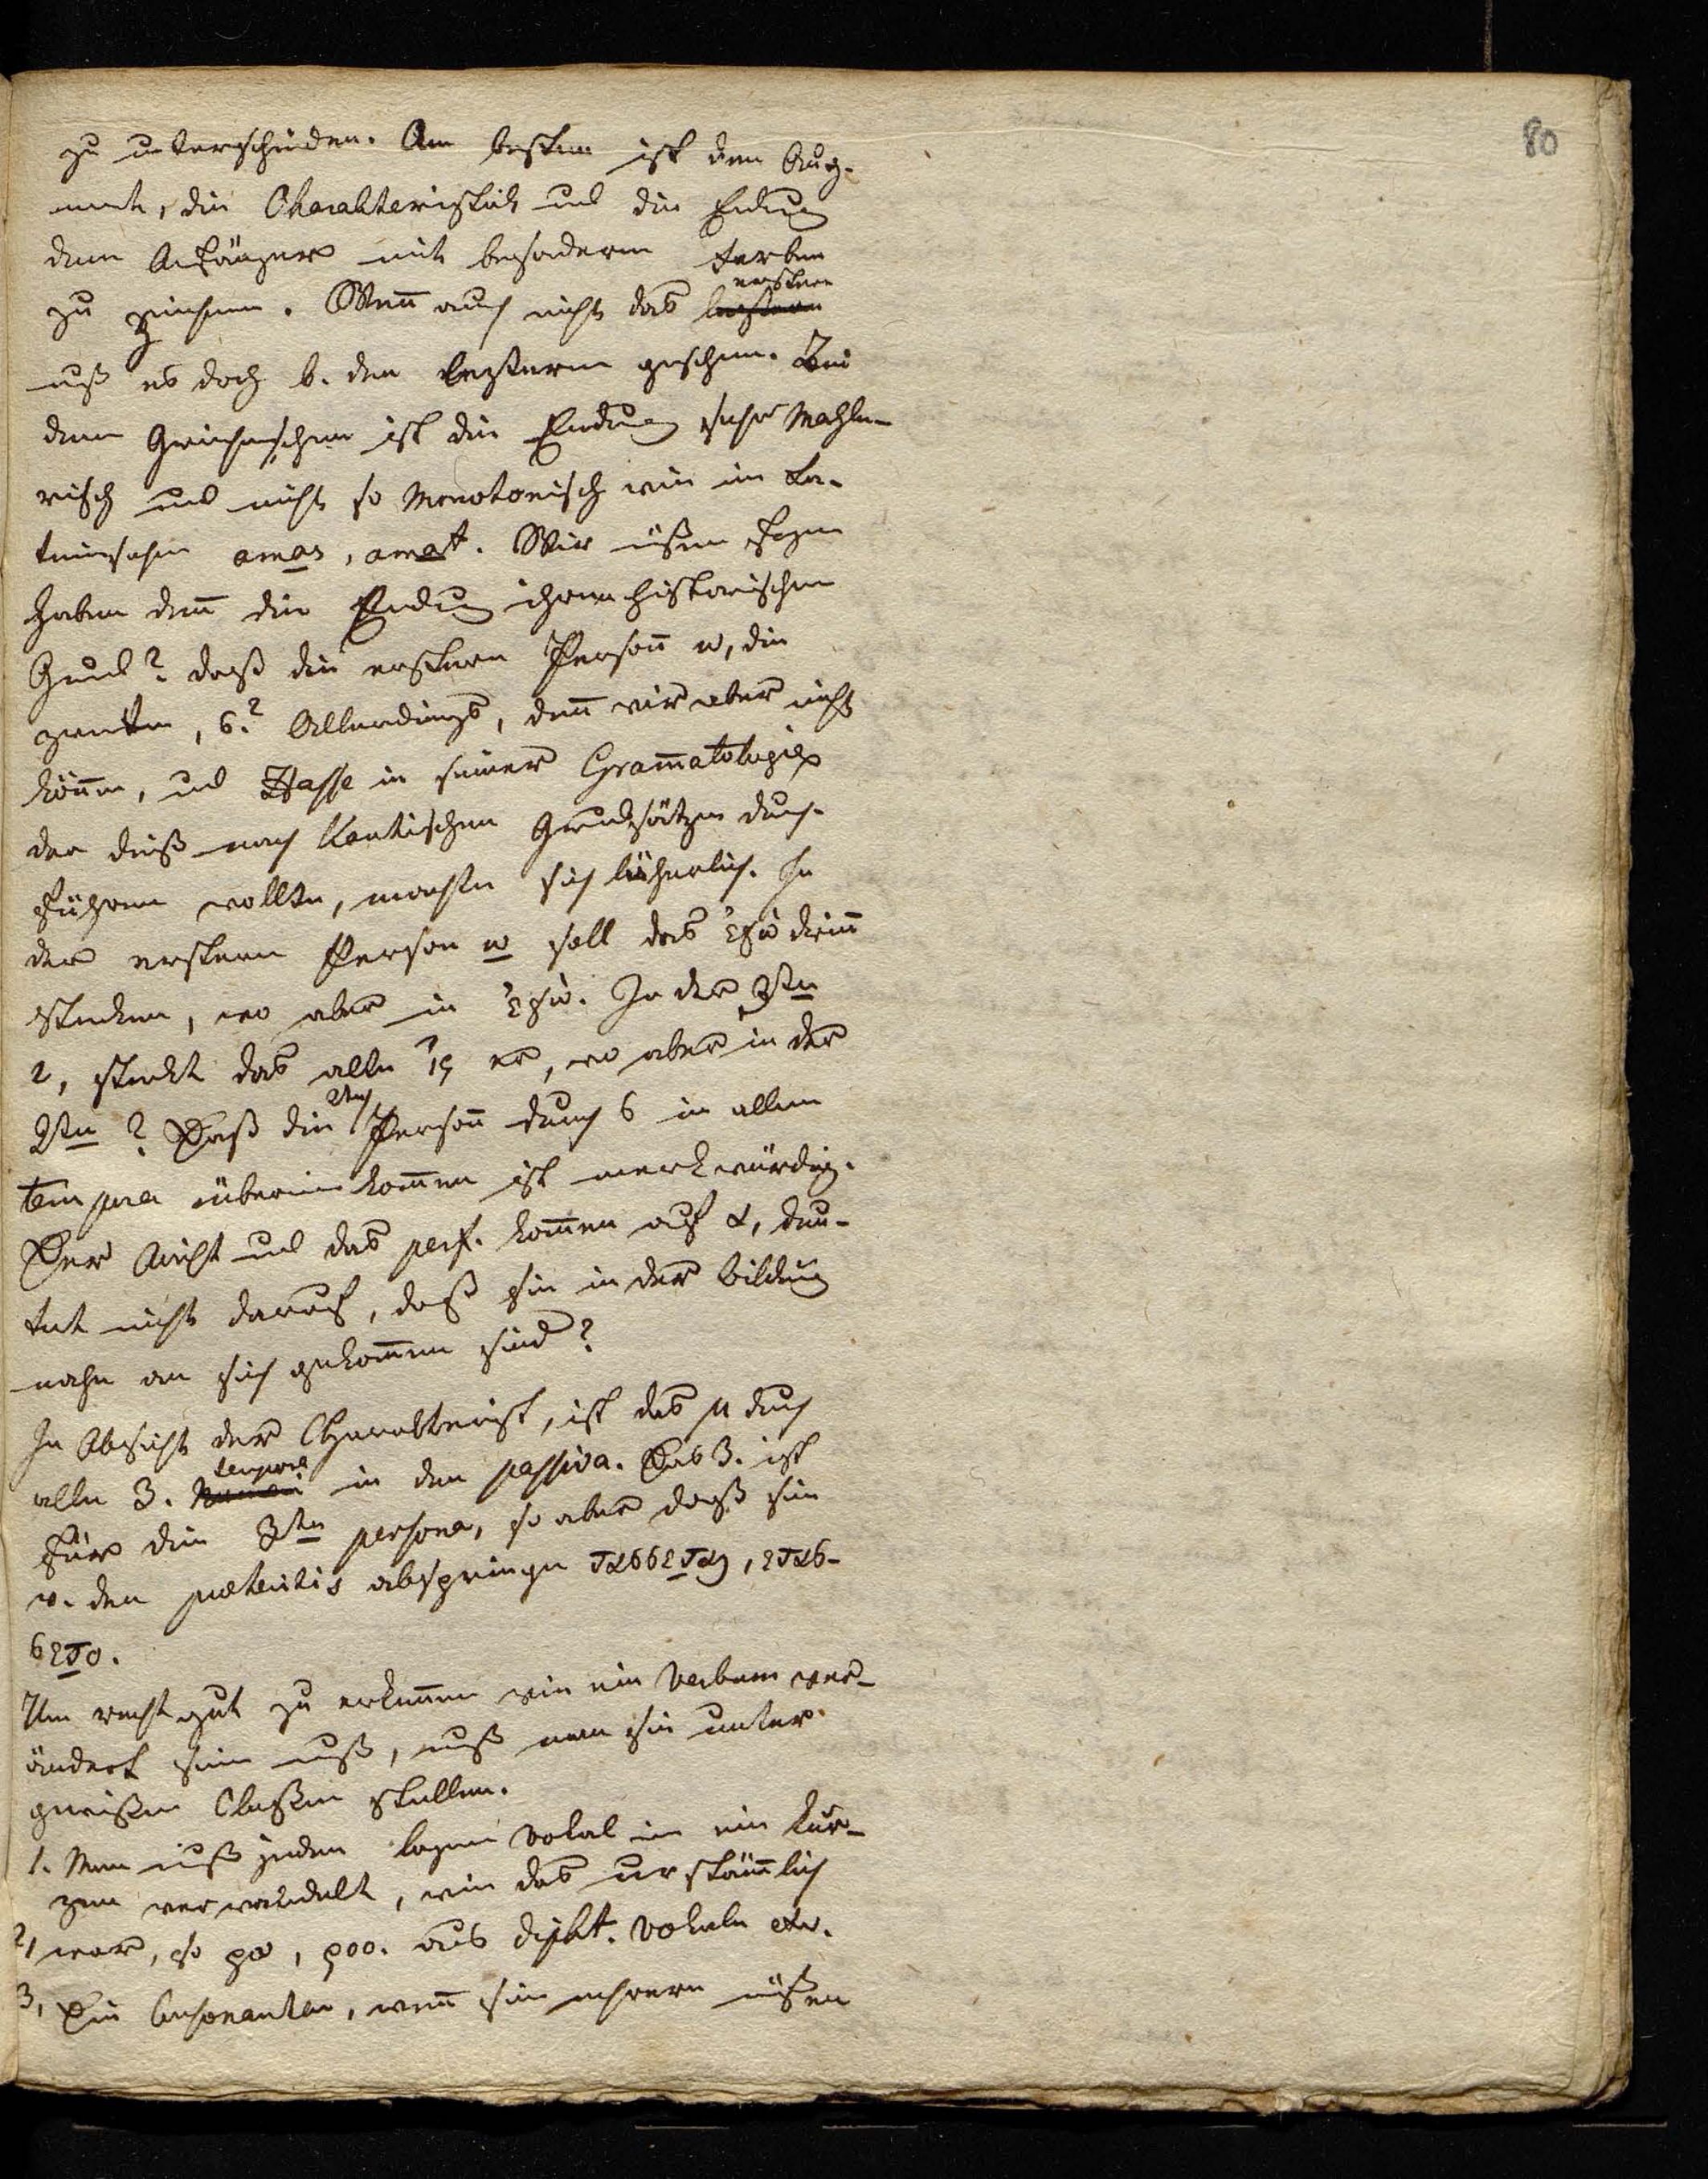 80
zu unterscheiden. Am besten ist den Aug-
ment, die Charakteristik und die Endung
dem Anfänger mit besondern Farben
zu zeichnen. Wenn auch nicht das erstere
muß es doch b. den leztern geschehn. Bei
dem Griechischen ist die Endung sehr Mahle-
risch und nicht so Monotonisch wie im La-
teinischen amas, amat. Wir müßen fragen
haben denn die Endung ihren historischen
Grund? daß die erstern Person ω, die
zweite, ς? Allerdings, den wir aber nicht
können, und Hasse in seiner Gram̄atologie
der dieß nach Kantischen Grundsätzen durch-
führen wollte, machte sich lächerlich. In
der erstern Person ω soll das ἐγὼ drinn
stecken, wo aber in ἐγὼ. In der 3ten
ι, steckt das alte ἱς er, wo aber in der
2ten? Daß die 2te Person durch ς in allen
tempora übereinkom̄en ist merkwürdig.
Der Aorist und das perf. kom̄en auf α, deu-
tet nicht darauf, daß sie in der Bildung
nahe an sich gekom̄en sind?
In Absicht der Charakterist, ist das μ durch
alle 3. tempora in den passiva. Das 3. ist
für die 3te persona, so aber daß sie
v. den praeteritis abspringe τασσεται, ετασ-
σετο.
Um recht gut zu erkennen wie ein Verbum ver-
ändert sein muß, muß man sie unter
gewißen Claßen stellen.
1. Man muß jeden langen Vokal in ein kur-
zen verwandelt, wie das urstäm̄lich
2, war, so ρω, ροο. aus dipht. Vokale etc.
3, Die Consonanten, wenn sie mehrere müßen